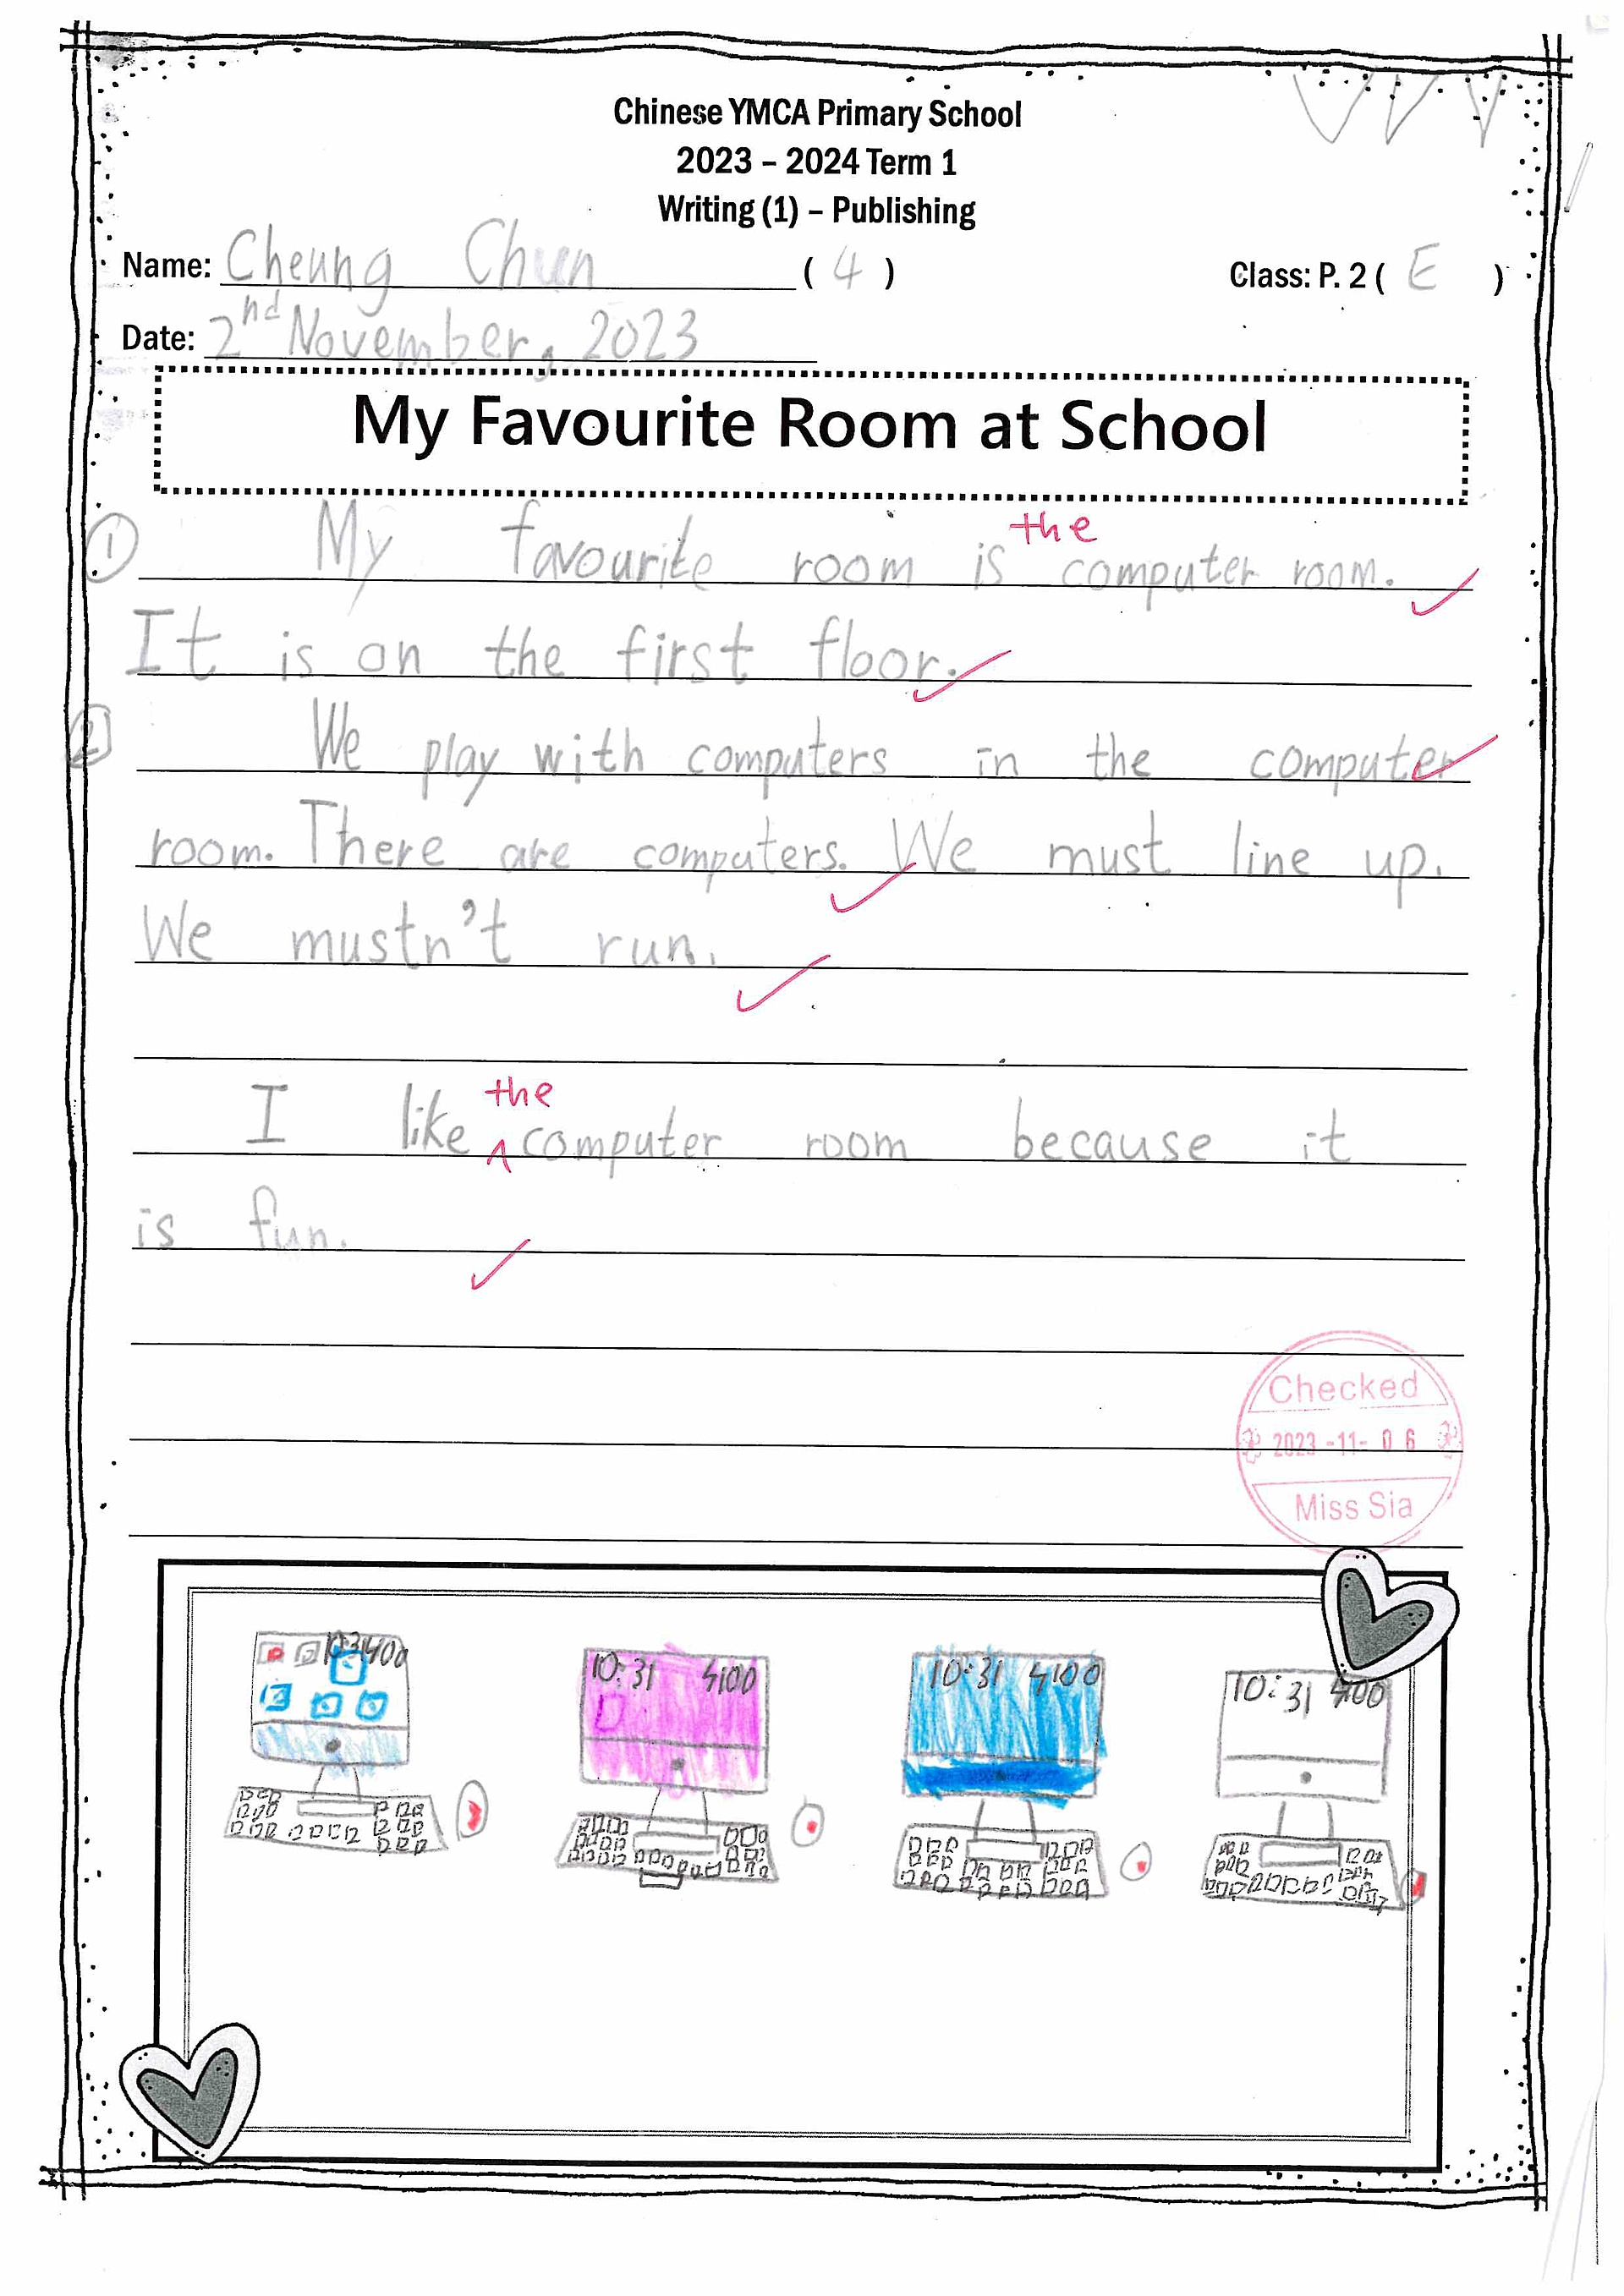 Chinese YMCA Primary School
2023 – 2024 Term 1
Writing (1) – Publishing
Name: Cheung Chun ( 4 ) Class: P. 2 ( E )
Date: 2nd November, 2023
My Favourite Room at School
the
① My favourite room is computer room.
It is on the first floor.
② We play with computers in the computer
room. There are computers. We must line up.
We mustn't run.
the
I like ^ computer room because it
is fun.
Checked
2023 -11- 06
Miss Sia
10:31 4100
10:31 4100
10:31 400